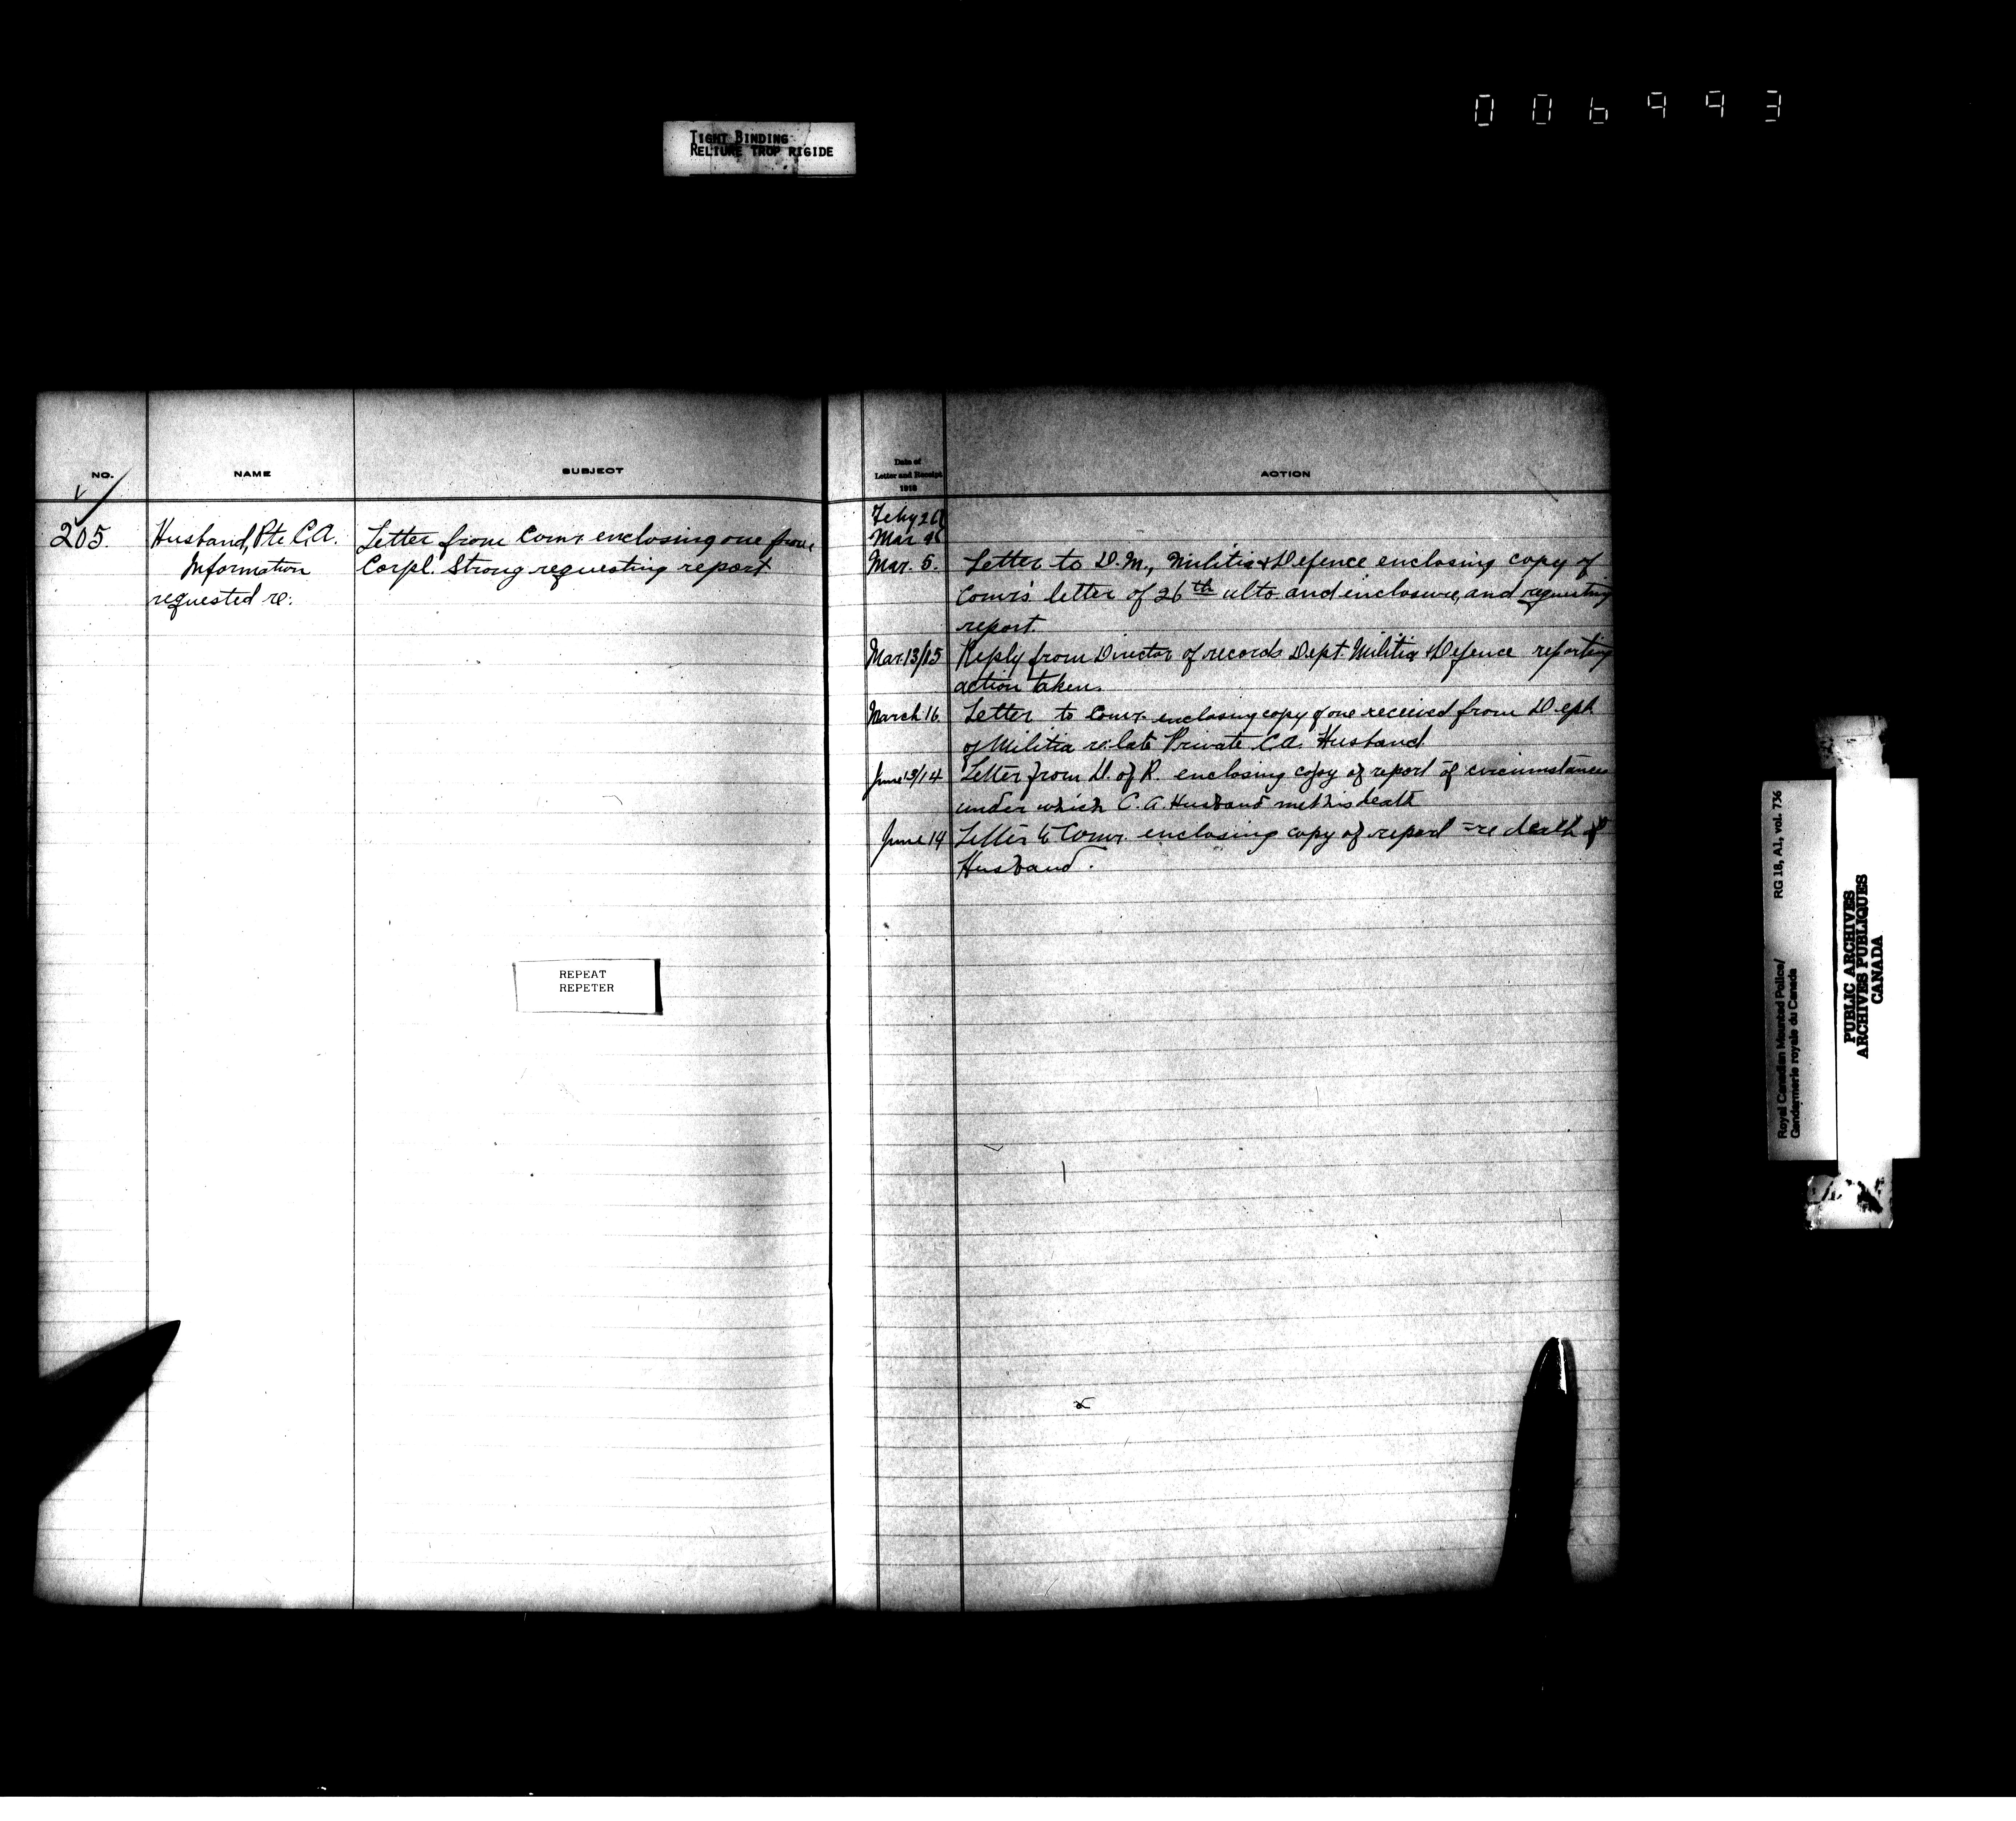 006993
TIGHT BINDING
RELIURE TROP RIGIDE
NO.
NAME
SUBJECT
205.
Husband, Pte C.A.
Information
requested re:
Letter from Comr. enclosing one from
Corpl. Strong requesting report
Date of
Letter and Receipt
1918
ACTION
Feby 26
Mar 4
Mar. 5.
Letter to D.M., Militia & Defence enclosing copy of
Comr's letter of 26th ulto. and inclosure, and requesting
report.
Mar. 13/15
Reply from Director of records Dept. Militia & Defence reporting
action taken.
March 16.
Letter to Comr. enclosing copy of one received from Dept.
of Militia re: late Private C.A. Husband
June 13/14
Letter from D. of R. enclosing copy of report of circumstances
under which C.A. Husband met his death
June 14
Letter to Comr. enclosing copy of report re death of
Husband.
REPEAT
REPETER
RG 18, A1, vol. 736
Royal Canadian Mounted Police/
Gendarmerie royale du Canada
PUBLIC ARCHIVES
ARCHIVES PUBLIQUES
CANADA